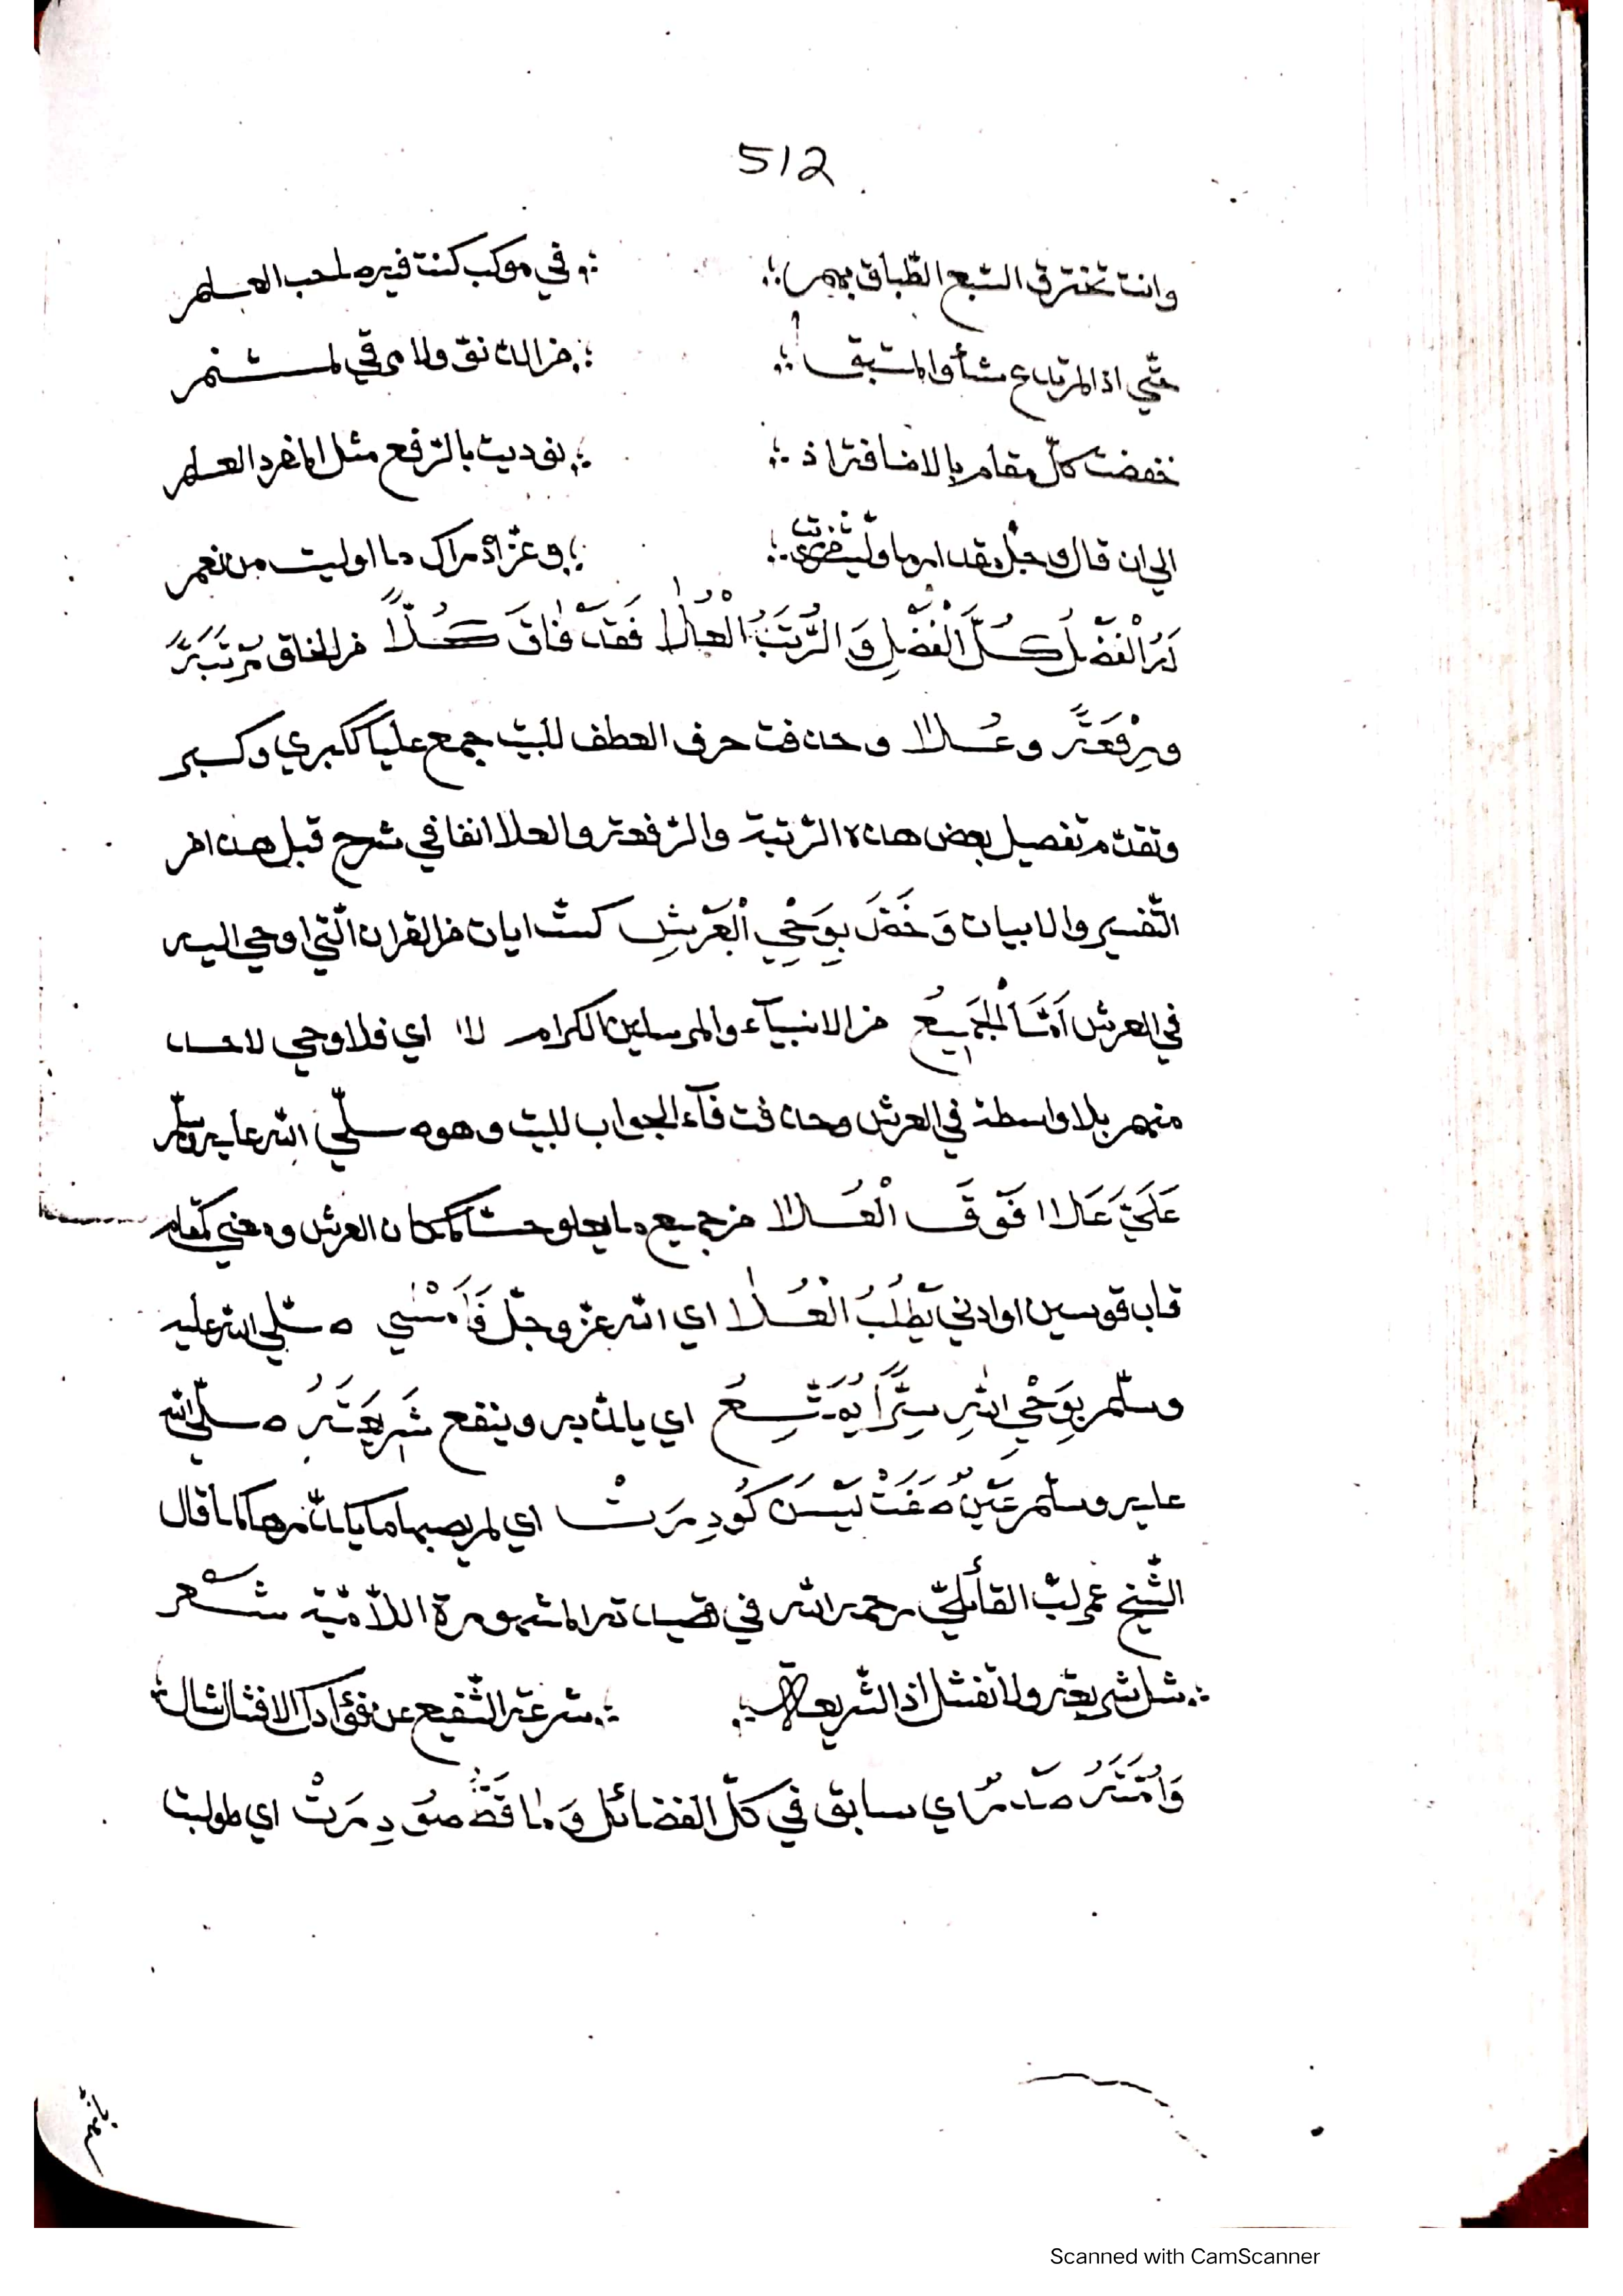 512
وانت تخترق السبع الطباق بهم ∴ ∴ في موكب كنت فيه صاحب العلم
حتّي اذا لم تدع شأوا لمستبق ∴ ∴ من الدنو ولا مرقي لمستنم
خفضت كلّ مقام بالاضافة اذ ∴ ∴ نوديت بالرّفع مثل المفرد العلم
الي ان قال وجلّ مقدار ما ولّيت من رتب ∴ ∴ وعزّ ادراك ما اوليت من نعم
لَهُ الْفَضْلُ كُلُّ الْفَضْلِ وَ الرُّتَبُ الْعُلَا فَقَدْ فَاقَ كُلًّا من الخلق مرْتَبَةً
ورِفْعَةً وعُلا وحذفت حرف العطف للبيت جمع عليا ككبري وكبر
وتقدّم تفصيل بعض هذه الرّتبة والرّفعة والعلا انفا في شرح قبل هذا من
التّفسير والابيات وَخَصَّ بِوَحْيِ الْعَرْشِ كستّ ايات من القران الّتي اوحي اليه
في العرش اَمَّا الْجَمِيعُ من الانبيآء والمرسلين الكرام لا اي فلا وحي لاحد
منهم بلا واسطة في العرش وحذفت فآء الجواب للبيت وهو صلّي الله عليه وسلّم
عَلِيٌّ عَلَا فَوْقَ الْعُلَا من جميع ما يعلو حسّا كمكان العرش ومعني كمقام
قاب قوسين او ادني يَطْلُبُ الْعُلَا اي الله عزّ وجلّ فَاَمْسَي صلّي الله عليه
وسلّم بِوَحْيِ اللهِ سِرًّا يُمَتَّعُ اي يلذّ به وينفع شَرِيعَتُهُ صلّي الله
عليه وسلّم عَيْنٌ صَفَتْ لَيْسَ كُودِرَتْ اي لم يصبها ما يكدّرها كما قال
الشّيخ عمر لبّ القآئليّ رحمه الله في قصيدته المشهورة اللّاميّة شعر
∴ سل شريعته ولا تفشل اذ الشّريعة ∴ ∴ شرعة الشّفيع عن فؤادك الافشال شال ∴
وَاُمَّتُهُ صَدْرٌ اي سابق في كلّ الفضائل وَمَا قَطُّ صُودِرَتْ اي طولبت
Scanned with CamScanner